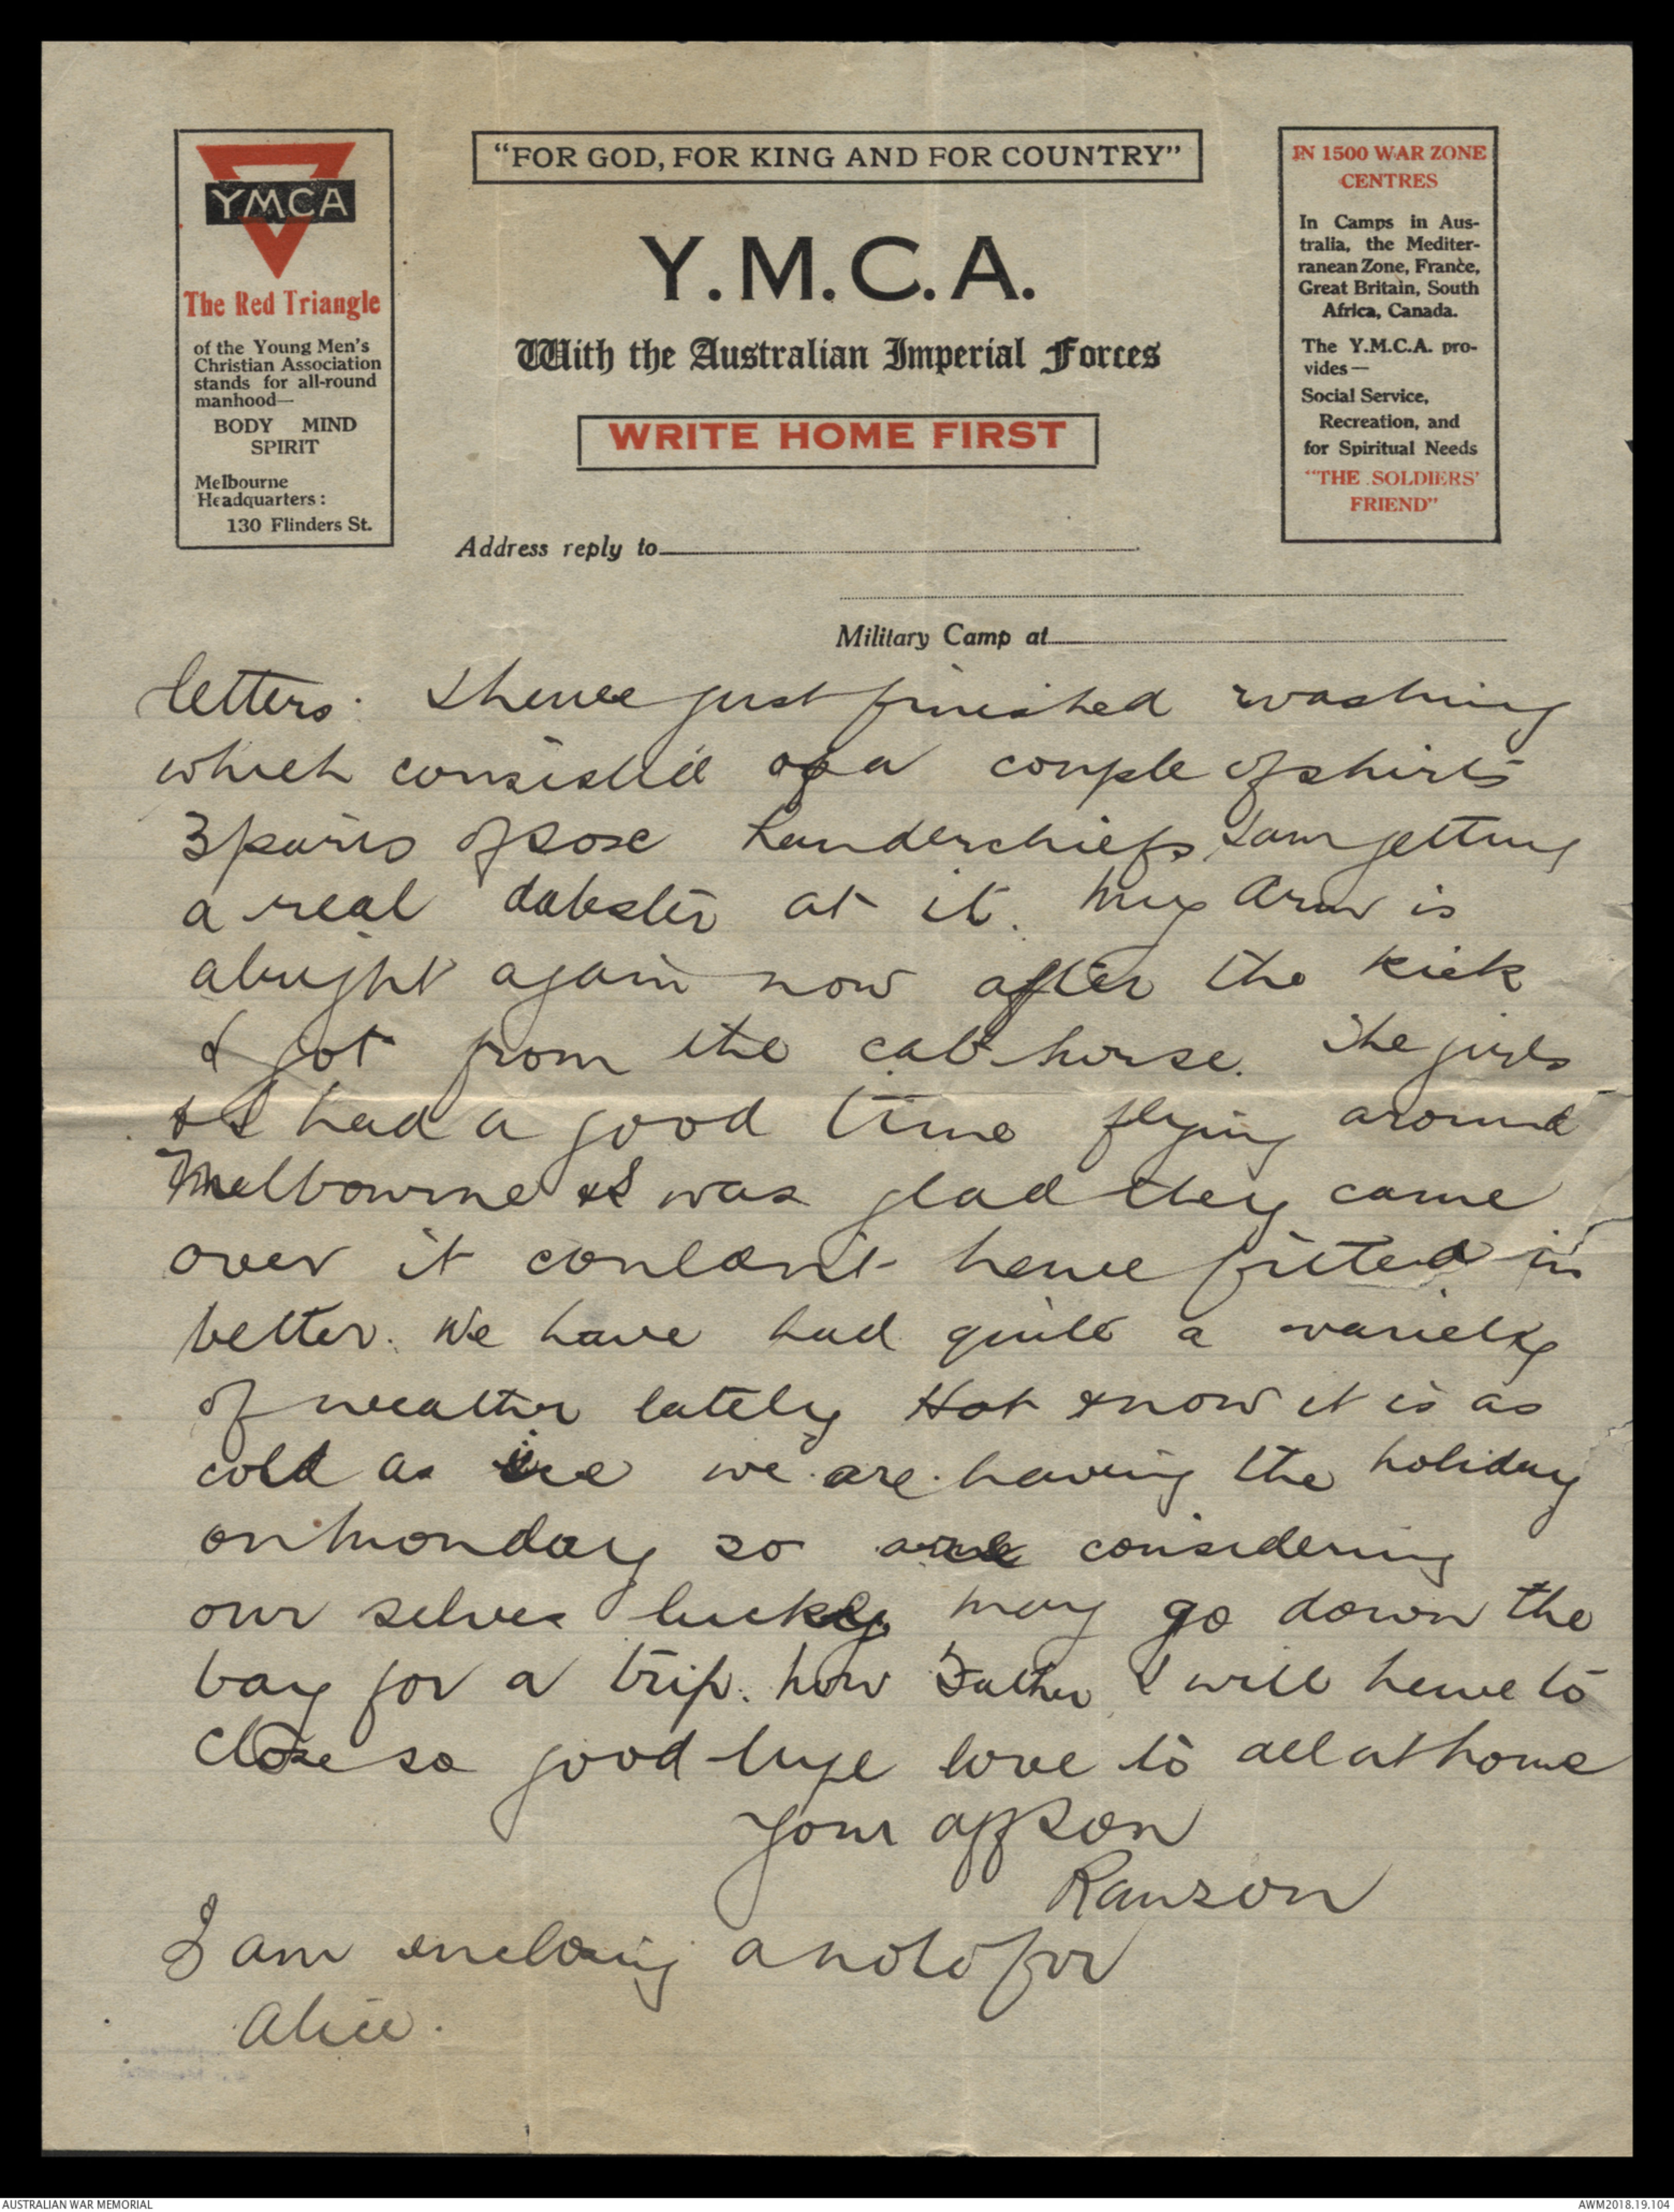 YMCA
The Red Triangle
of the Young Men's
Christian Association
stands for all-round
manhood—
BODY MIND
SPIRIT
Melbourne
Headquarters:
130 Flinders St.
"FOR GOD, FOR KING AND FOR COUNTRY"
Y.M.C.A.
With the Australian Imperial Forces
WRITE HOME FIRST
IN 1500 WAR ZONE
CENTRES
In Camps in Aus-
tralia, the Mediter-
ranean Zone, France,
Great Britain, South
Africa, Canada.
The Y.M.C.A. pro-
vides—
Social Service,
Recreation, and
for Spiritual Needs
"THE SOLDIERS'
FRIEND"
Address reply to
Military Camp at
letters. I have just finished washing
which consisted of a couple of shirts
3 pairs of sox handerchiefs I am getting
a real dabster at it. My arm is
alright again now after the kick
I got from the cab horse. The girls
& I had a good time flying around
Melbourne & I was glad they came
over it couldn't have fitted in
better. We have had quite a variety
of weather lately Hot & now it is as
cold as ice we are having the holiday
on Monday so are considering
our selves lucky may go down the
bay for a trip. Now Father I will have to
close so good-bye love to all at home
Your aff son
Ranson
I am enclosing a note for
Alice.
AUSTRALIAN WAR MEMORIAL
AWM2018.19.104